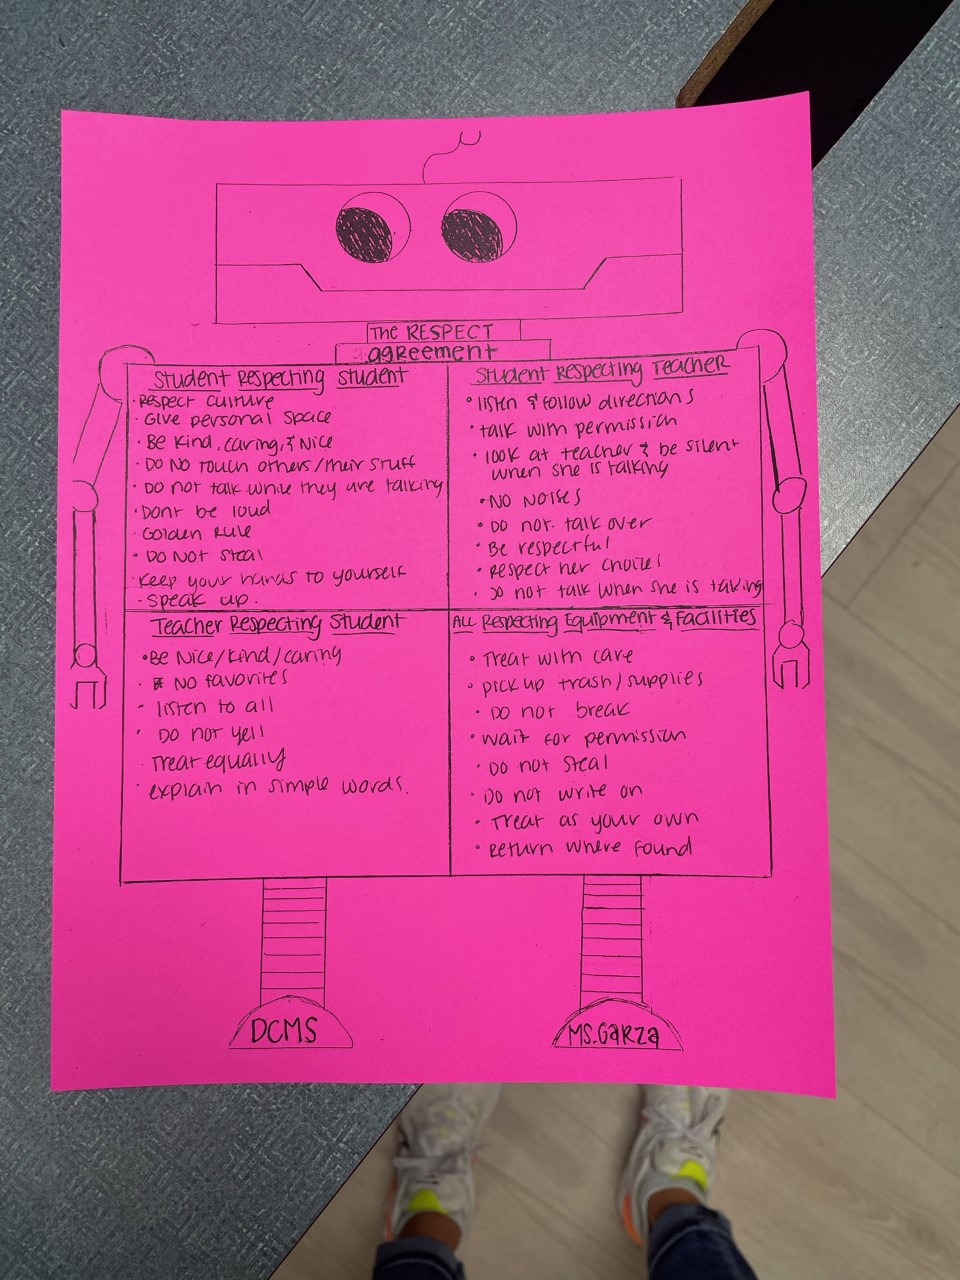 The RESPECT
aggReement
Student Respecting Student
· Respect culture
· Give personal space
· Be kind, caring, & nice
· DO NO touch others/their stuff
· DO not talk while they are talking
· Dont be loud
· Golden Rule
· DO NOT Steal
· Keep your hands to yourself
· speak up.
Student Respecting Teacher
· listen & follow directions
· talk with permission
· look at teacher & be silent
when she is talking
· NO NOISES
· DO not. talk over
· Be respectful
· Respect her choices
· DO not talk when she is talking
Teacher Respecting Student
· Be Nice/kind/caring
· NO favorites
· listen to all
· DO not yell
· Treat equally
· explain in simple words.
ALL Respecting Equipment & Facilities
· Treat with care
· pick up trash/supplies
· DO not break
· wait for permission
· DO not steal
· DO not write on
· Treat as your own
· Return where found
DCMS
MS. GARZA